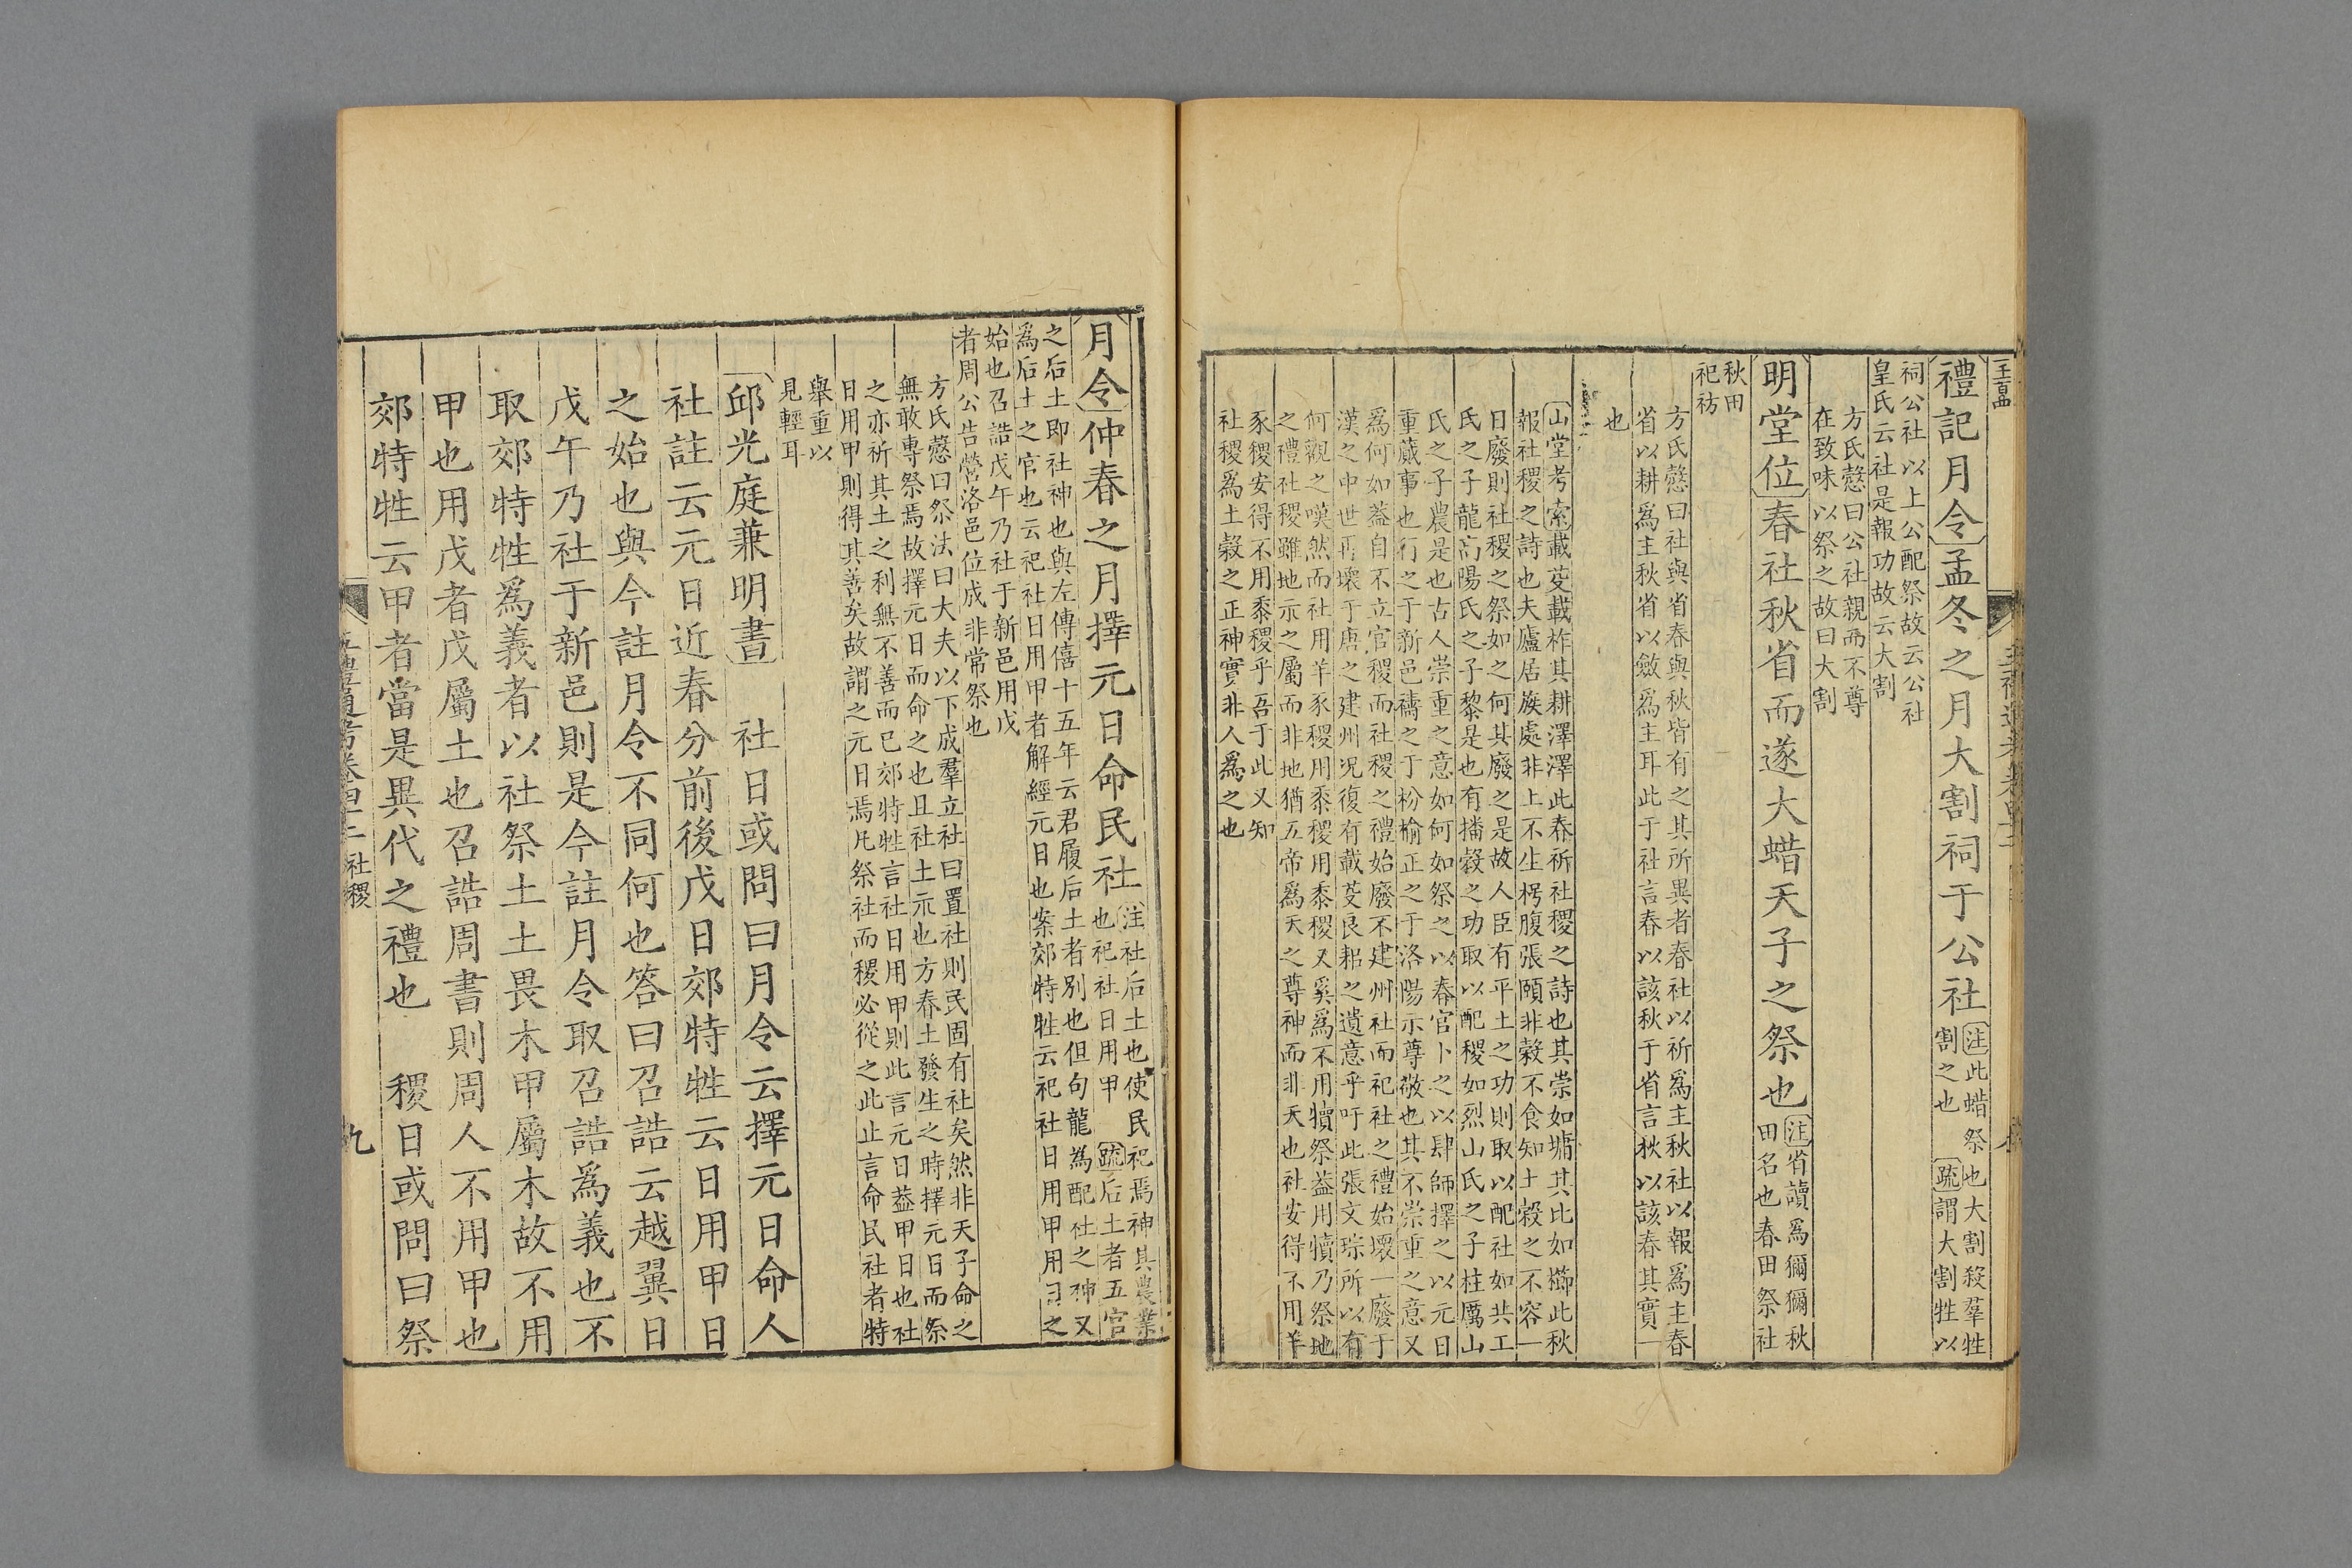 禮記月令孟冬之月大割祠于公社注此蜡祭也大割殺羣牲
割之也 疏謂大割牲以
祠公社以上公配祭故云公社
皇氏云社是報功故云大割
方氏慤曰公社親而不尊
在致味以祭之故曰大割
明堂位春社秋省而遂大蜡天子之祭也注省讀爲獮獮秋
田名也春田祭社
秋田
祀祊
方氏慤曰社與省春與秋皆有之其所異者春社以祈爲主秋社以報爲主春
省以耕爲主秋省以斂爲主耳此于社言春以該秋于省言秋以該春其實一
也
山堂考索載芟載柞其耕澤澤此春祈社稷之詩也其崇如墉其比如櫛此秋
報社稷之詩也夫廬居族處非上不生枵腹張頤非穀不食知土穀之不容一
日廢則社稷之祭如之何其廢之是故人臣有平土之功則取以配社如共工
氏之子龍高陽氏之子黎是也有播穀之功取以配稷如烈山氏之子柱厲山
氏之子農是也古人崇重之意如何如祭之以春官卜之以肆師擇之以元日
重蕆事也行之于新邑禱之于枌榆正之于洛陽示尊敬也其不崇重之意又
爲何如葢自不立官稷而社稷之禮始廢不建州社而祀社之禮始壞一廢于
漢之中世再壞于唐之建州况復有載芟良耜之遺意乎吁此張文琮所以有
何觀之嘆然而社用羊豕稷用黍稷用黍稷又奚爲不用犢祭葢用犢乃祭地
之禮社稷雖地示之屬而非地猶五帝爲天之尊神而非天也社安得不用羊
豕稷安得不用黍稷乎吾于此又知
社稷爲土穀之正神實非人爲之也
月令仲春之月擇元日命民社注社后土也使民祀焉神其農業
也祀社日用甲 疏后土者五官
之后土即社神也與左傳僖十五年云君履后土者別也但句龍爲配社之神又
爲后土之官也云祀社日用甲者解經元日也案郊特牲云祀社日用甲用日之
始也召誥戊午乃社于新邑用戊
者周公告營洛邑位成非常祭也
方氏慤曰祭法曰大夫以下成羣立社曰置社則民固有社矣然非天子命之
無敢專祭焉故擇元日而命之也且社土示也方春土發生之時擇元日而祭
之亦祈其土之利無不善而已郊特牲言社日用甲則此言元日葢甲日也社
日用甲則得其善矣故謂之元日焉凡祭社而稷必從之此止言命民社者特
舉重以
見輕耳
邱光庭兼明書 社日或問曰月令云擇元日命人
社註云元日近春分前後戊日郊特牲云日用甲日
之始也與今註月令不同何也答曰召誥云越翼日
戊午乃社于新邑則是今註月令取召誥爲義也不
取郊特牲爲義者以社祭土土畏木甲屬木故不用
甲也用戊者戊屬土也召誥周書則周人不用甲也
郊特牲云甲者當是異代之禮也 稷日或問曰祭
五禮通考卷四十二 社稷
九